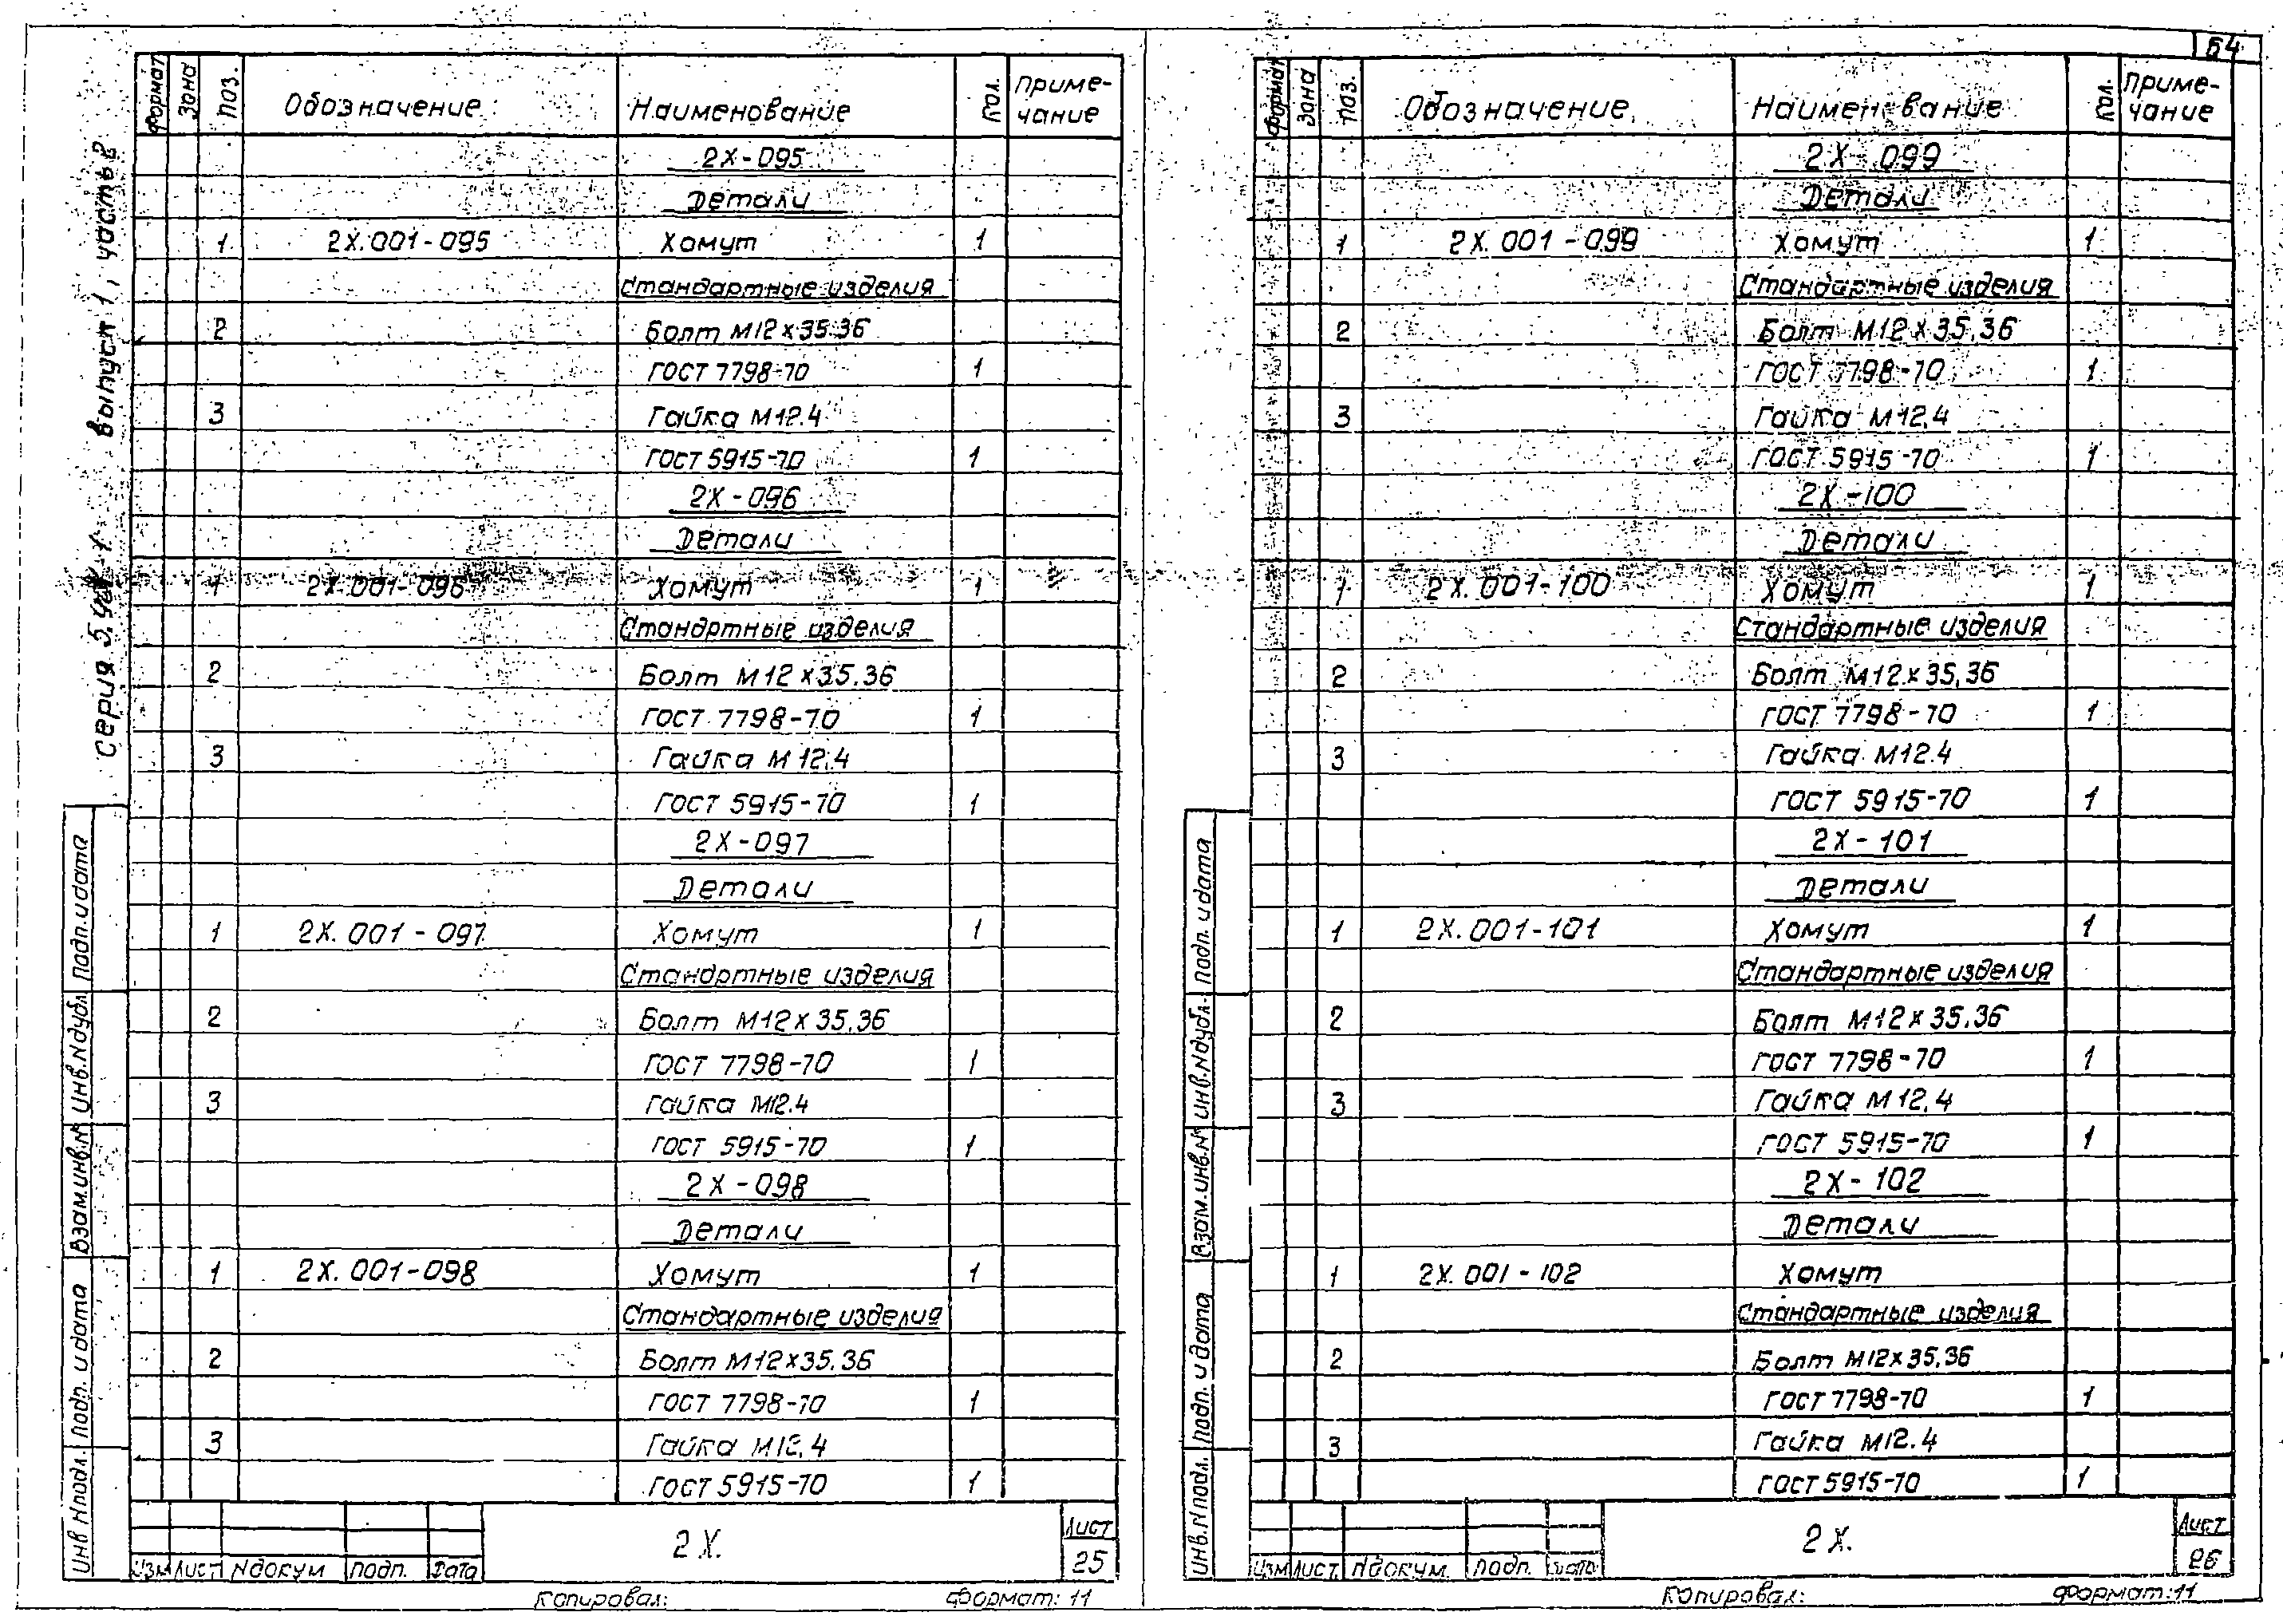 54
Серия 5.90 выпуск 1, часть 2
Формат Зона Поз. Обозначение Наименование Кол. Приме-
чание
2Х-095
Детали
1 2Х.001-095 Хомут 1
Стандартные изделия
2 Болт М12х35.36
ГОСТ 7798-70 1
3 Гайка М12.4
ГОСТ 5915-70 1
2Х-096
Детали
1 2Х.001-096 Хомут 1
Стандртные изделия
2 Болт М12х35.36
ГОСТ 7798-70 1
3 Гайка М12.4
ГОСТ 5915-70 1
2Х-097
Детали
1 2Х.001-097 Хомут 1
Стандртные изделия
2 Болт М12х35.36
ГОСТ 7798-70 1
3 Гайка М12.4
ГОСТ 5915-70 1
2Х-098
Детали
1 2Х.001-098 Хомут 1
Стандартные изделия
2 Болт М12х35.36
ГОСТ 7798-70 1
3 Гайка М12.4
ГОСТ 5915-70 1
Инв Nподл. Подп. и дата Взам.инв.N Инв.Nдубл. Подп. и дата
Изм Лист Nдокум Подп. Дата
2Х.
Лист
25
Копировал: Формат: 11
Формат Зона Поз. Обозначение Наименование Кол. Приме-
чание
2Х-099
Детали
1 2Х.001-099 Хомут 1
Стандартные изделия
2 Болт М12х35.36
ГОСТ 7798-70 1
3 Гайка М12.4
ГОСТ 5915-70 1
2Х-100
Детали
1 2Х.001-100 Хомут 1
Стандартные изделия
2 Болт М12х35.36
ГОСТ 7798-70 1
3 Гайка М12.4
ГОСТ 5915-70 1
2Х-101
Детали
1 2Х.001-101 Хомут 1
Стандартные изделия
2 Болт М12х35.36
ГОСТ 7798-70 1
3 Гайка М12.4
ГОСТ 5915-70 1
2Х-102
Детали
1 2Х.001-102 Хомут
Стандартные изделия
2 Болт М12х35.36
ГОСТ 7798-70 1
3 Гайка М12.4
ГОСТ 5915-70 1
Инв.Nподл. Подп. и дата Взам.инв.N Инв.Nдубл. Подп. и дата
Изм Лист Nдокум. Подп. Дата
2Х.
Лист
26
Копировал: Формат: 11